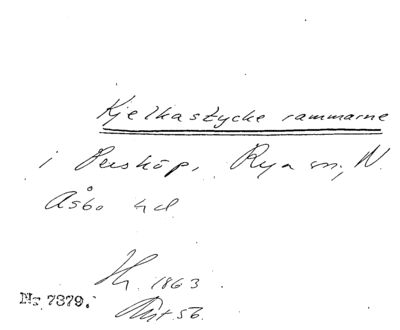 Kjelkastycke rammarne
i Perskôp, Rya sn, N.
Åsbo hd
Hr. 1863.
Nr 7379.
56.